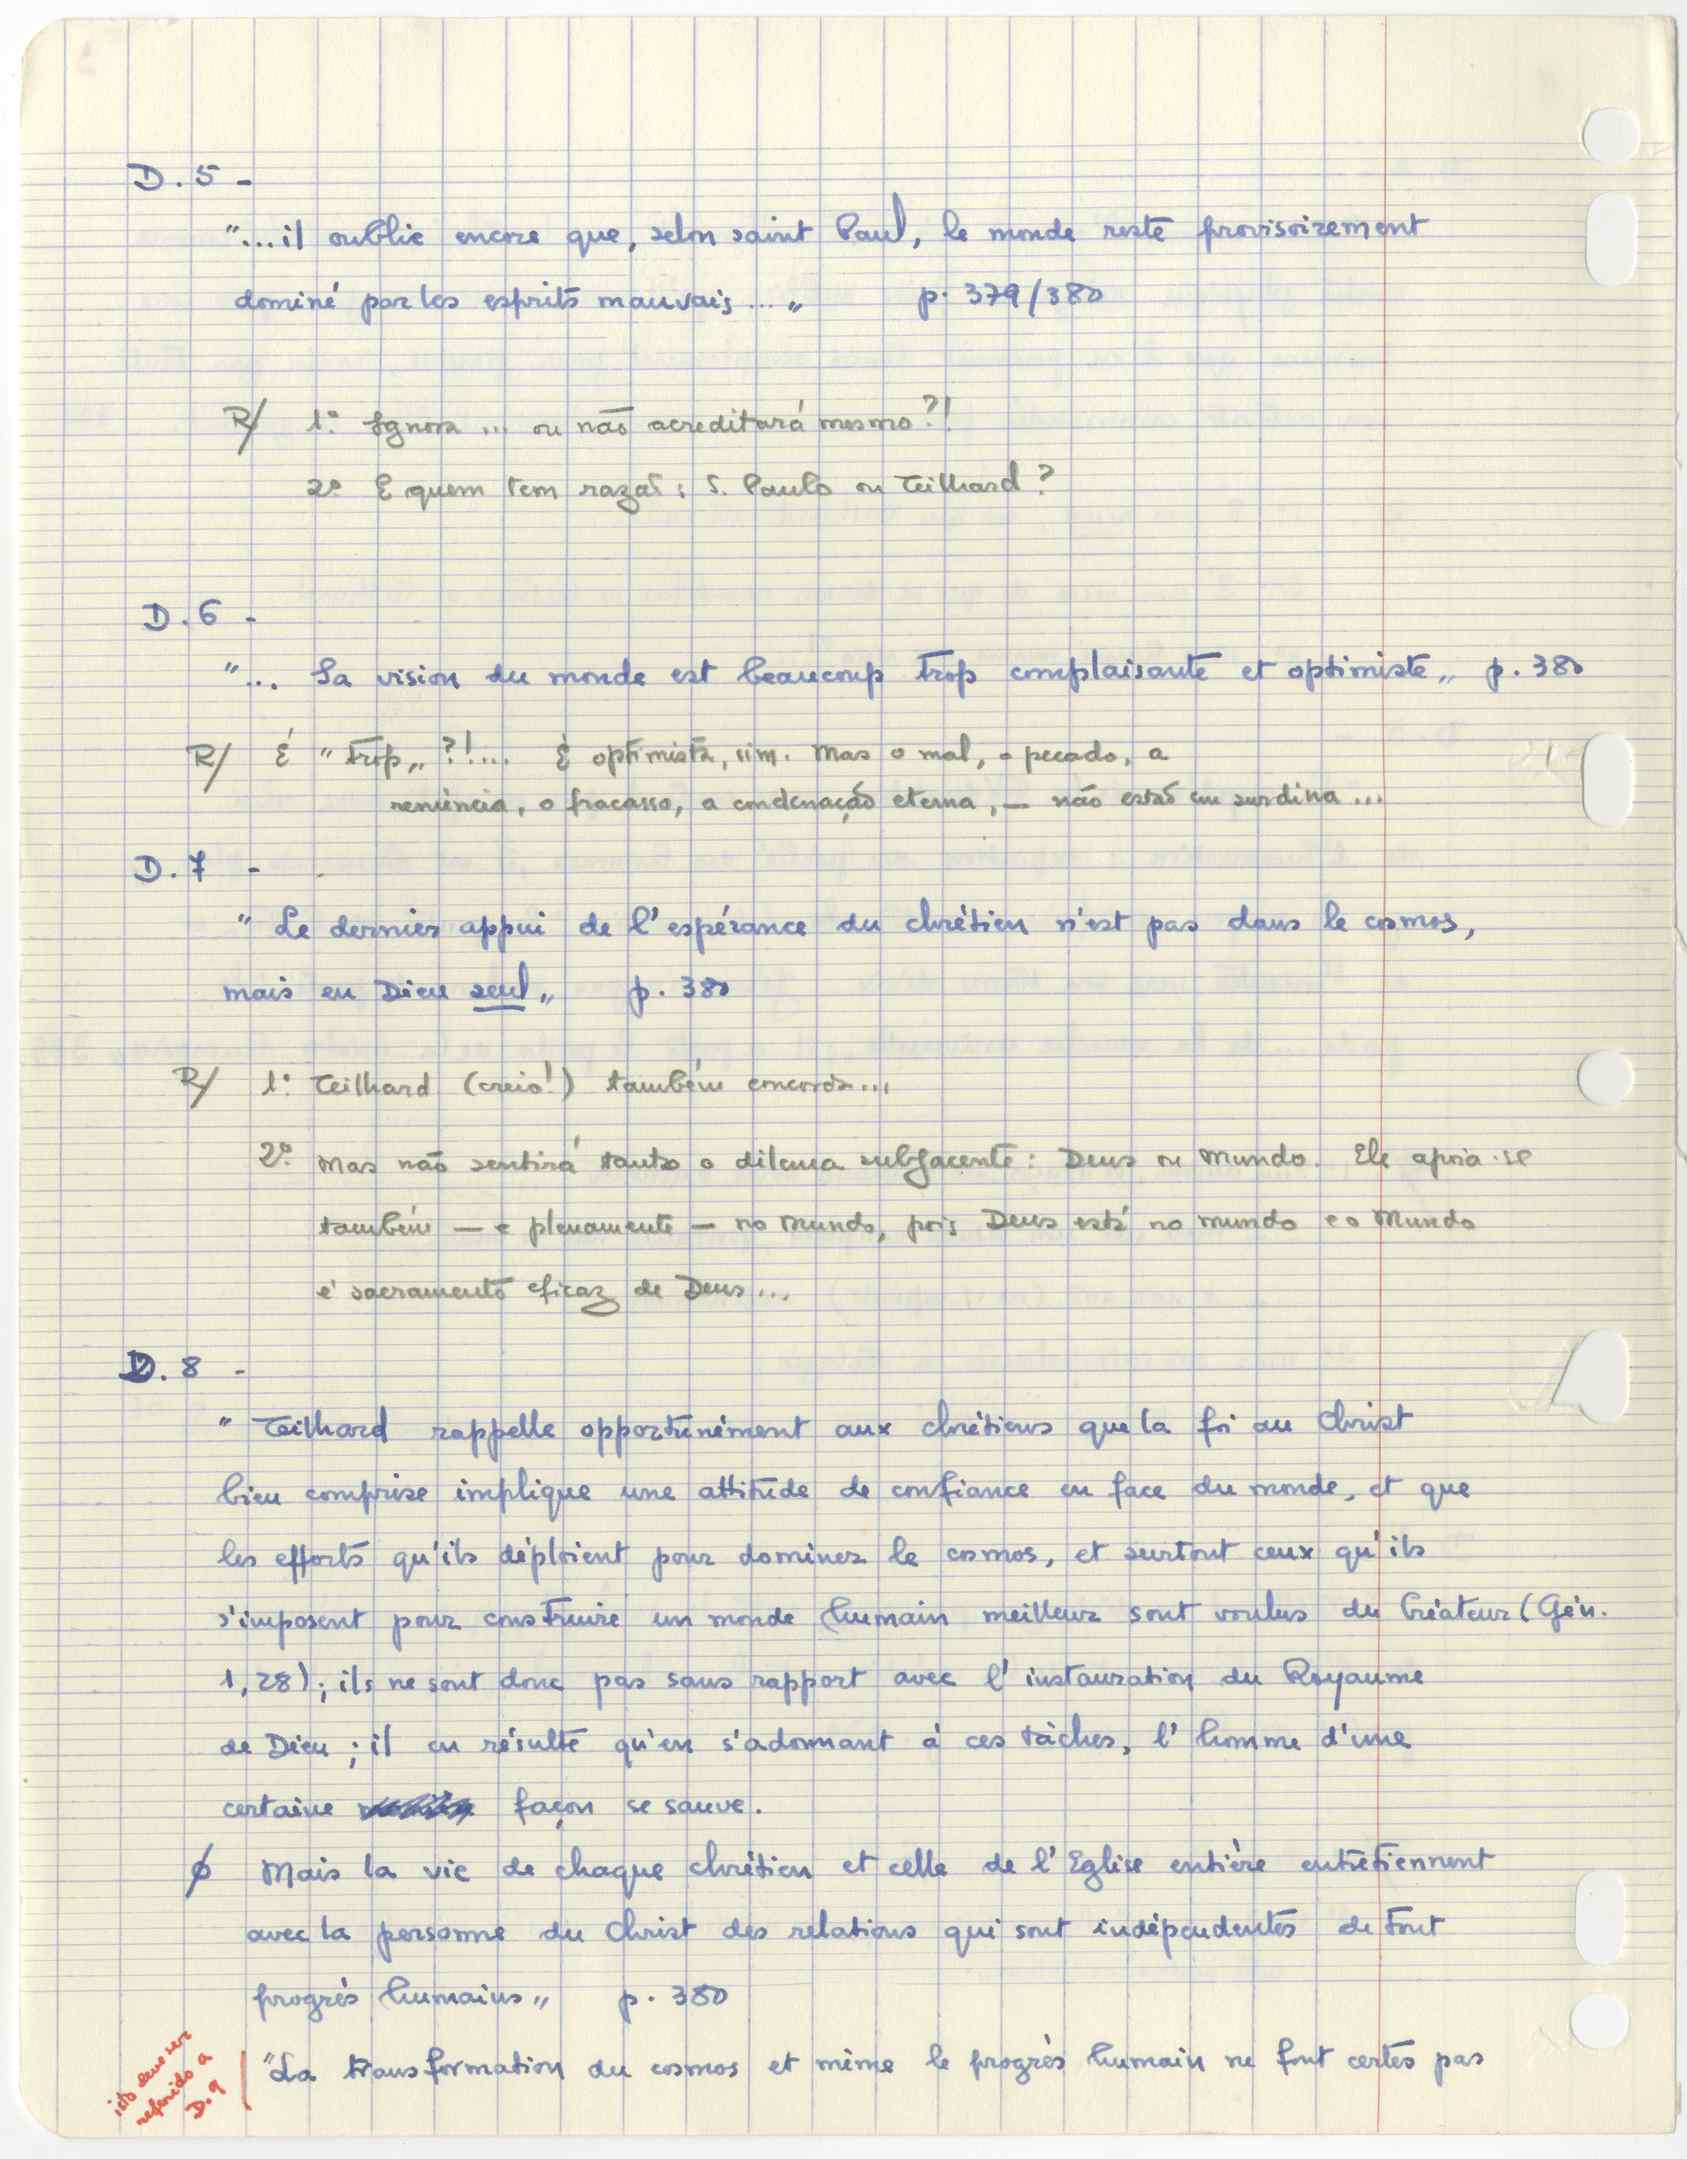 D.5 -
"...il oublie encore que, selon saint Paul, le monde reste provisoirement
dominé par les esprits mauvais..." p. 379/380
R/ 1º Ignora ... ou não acreditará mesmo?!
2º E quem tem razaõ: S. Paulo ou Teilhard?
D.6 -
"... Sa vision du monde est beaucoup trop complaisante et optimiste" p. 380
R/ É "trop"?!... É optimista, sim. Mas o mal, o pecado, a
renúncia, o fracasso, a condenação eterna, — não estaõ em surdina...
D.7 -
"Le dernier appui de l'espérance du chrétien n'est pas dans le cosmos,
mais en Dieu seul" p. 380
R/ 1º Teilhard (creio!) também concorda...
2º Mas não sentirá tanto o dilema subjacente: Deus ou Mundo. Ele apoia-se
também — e plenamente — no Mundo, pois Deus está no mundo e o Mundo
é sacramento eficaz de Deus...
D.8 -
"Teilhard rappelle opportunément aux chrétiens que la foi au Christ
bien comprise implique une attitude de confiance en face du monde, et que
les efforts qu'ils déploient pour dominer le cosmos, et surtout ceux qu'ils
s'imposent pour construire un monde humain meilleur sont voulus du Créateur (Gén.
1,28); ils ne sont donc pas sans rapport avec l'instauration du Royaume
de Dieu; il en résulte qu'en s'adonnant à ces tâches, l'homme d'une
certaine façon se sauve.
∅ Mais la vie de chaque chrétien et celle de l'Eglise entière entretiennent
avec la personne du Christ des relations qui sont indépendentes de tout
progrès humains" p. 380
"La transformation du cosmos et même le progrès humain ne font certes pas
isto deve ser
referido a
D.9